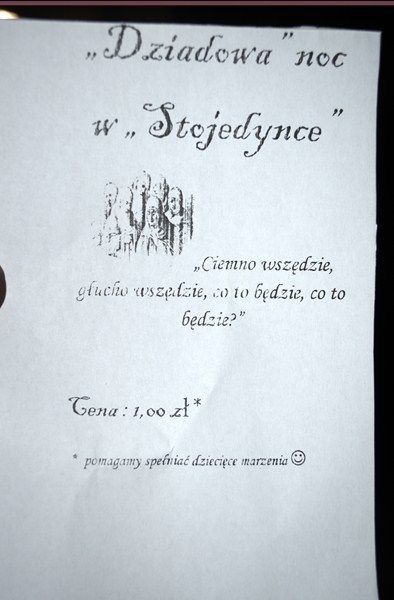 „Dziadowa” noc
w „Stojedynce”
„Ciemno wszędzie,
głucho wszędzie, co to będzie, co to
będzie?”
Cena : 1,00 zł*
* pomagamy spełniać dziecięce marzenia ☺